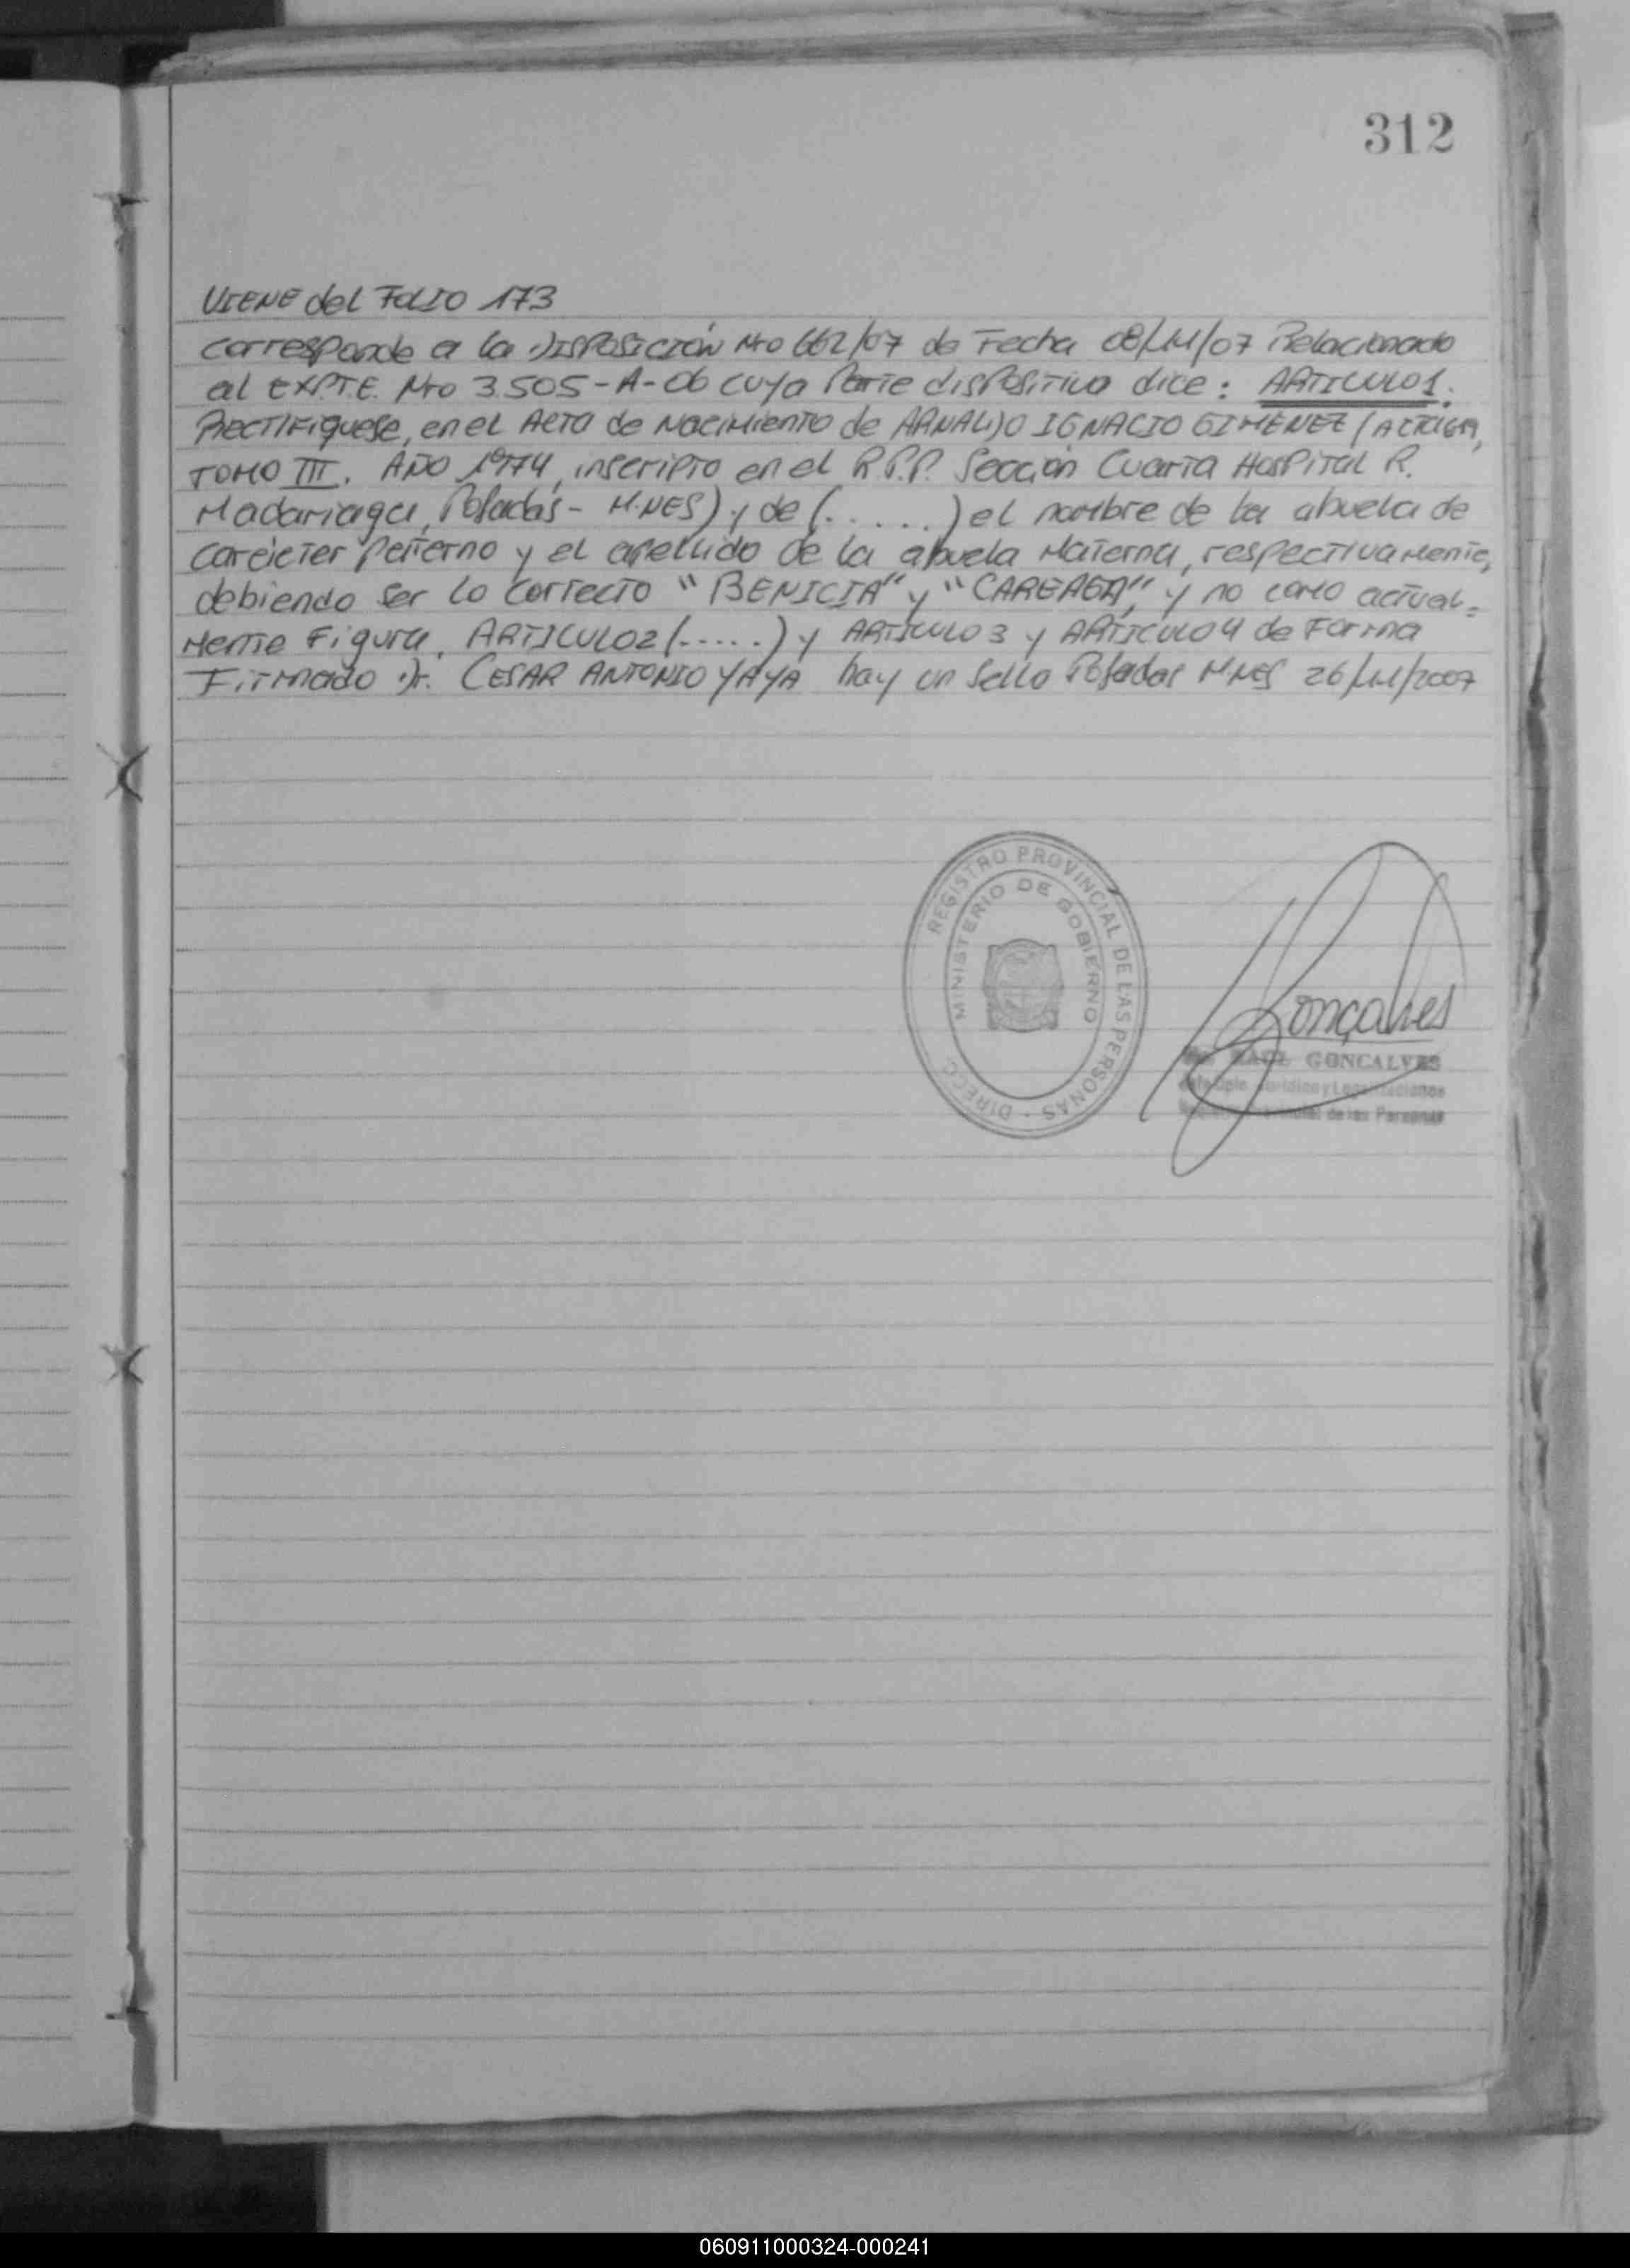 312
VIENE del FOLIO 173
corresponde a la DISPOSICIÓN Nro 662/07 de Fecha 08/11/07 Relacionado
al EXPTE. Nro 3.505-A-06 cuya Parte dispositiva dice: ARTICULO 1.
RECTIFIQUESE, en el ACTA de Nacimiento de ARNALDO IGNACIO GIMENEZ (ACTA
TOMO III. AÑO 1974, inscripto en el R.P.P. Sección Cuarta Hospital R.
Madariaga, Posadas - M.NES) y de (......) el nombre de la abuela de
carácter paterno y el apellido de la abuela Materna, respectivamente,
debiendo ser lo correcto "BENICIA" y "CAREAGA", y no como actual=
Mente Figura. ARTICULO 2 (.....) y ARTICULO 3 y ARTICULO 4 de Forma
Firmado Dr. CESAR ANTONIO YAYA hay un Sello Posadas MNES 26/11/2007
REGISTRO PROVINCIAL DE LAS PERSONAS - DIRECC
MINISTERIO DE GOBIERNO
Gonçalves
GONCALVES
de las Personas
060911000324-000241